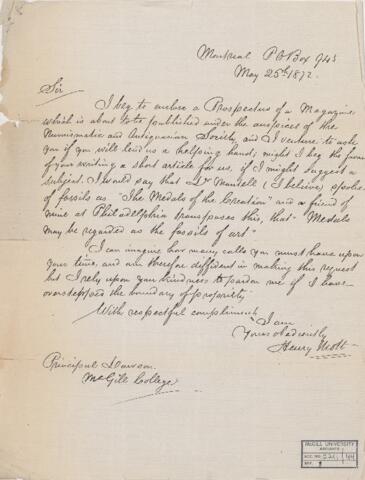 Montreal P O Box 943
May 25th 1872.
Sir
I beg to enclose a Prospectus of a Magazine
which is about to be published under the auspices of the
Numismatic and Antiquarian Society, and I venture to ask
you if you will lend us a helping hand; might I beg the favor
of your writing a short article for us, if I might suggest a
subject. I would say that Dr Mantell (I believe) spoke
of fossils as "The Medals of the Creation" and a friend of
mine at Philadelphia transposes this, that "Medals
may be regarded as the fossils of art"
I can imagine how many calls you must have upon
your time, and am therefore diffident in making this request
but I rely upon your kindness to pardon me if I have
overstepped the boundary of propriety
With respectful compliments
I am
Yours obediently
Henry Mott
Principal Dawson.
McGill College
McGILL UNIVERSITY
ARCHIVES
ACC. NO.
REF.